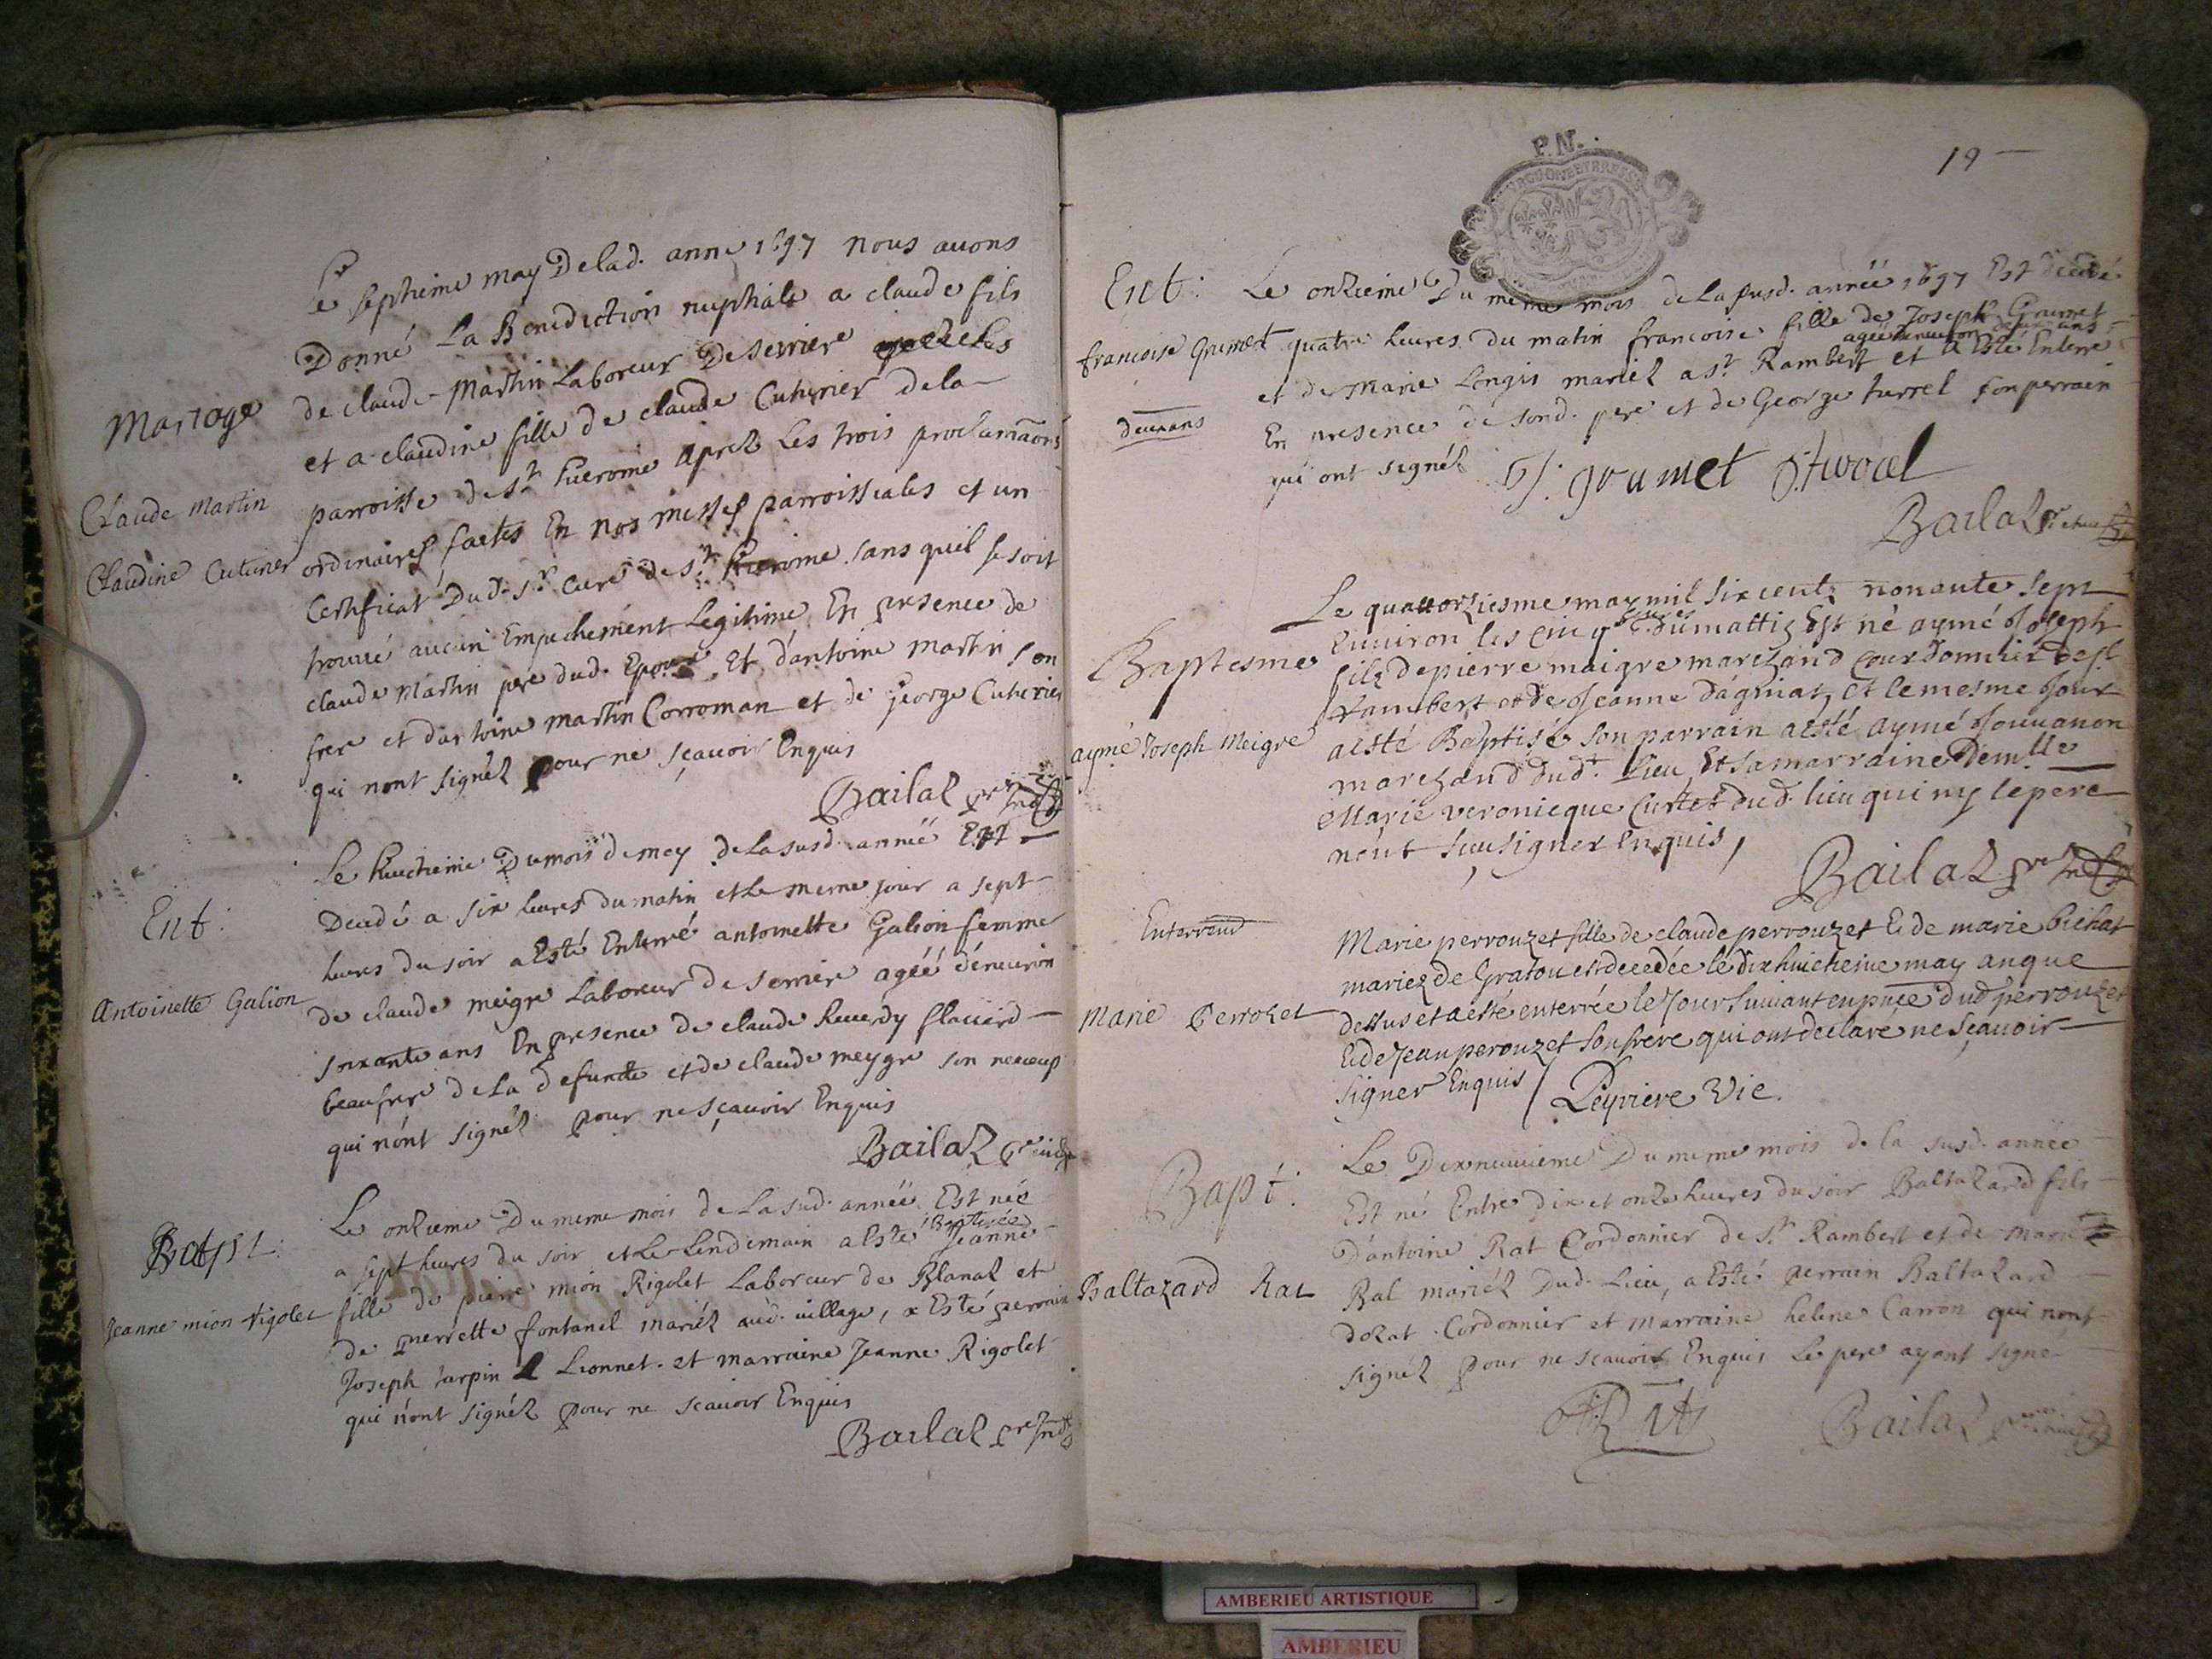 Mariage
Claude Martin
Claudine Cuturier
Le septieme may De lad. anné 1697 nous auons
Donné La Benediction nuptiale a claude fils
de claude Martin Laboreur De serriere
et a claudine fille de claude Cuturier de la
parroisse de st hierome aprez Les trois proclamaons
ordinaires faites En nos messes parroissiales et un
Certificat Dud. sr. curé de st hierome sans quil se soit
trouué aucun Empechement Legitime En presence de
claude Martin pere dud. Epoux Et d'antoine martin son
frere et d'antoine martin Corroman et de George Cuturier
qui nont signéz pour ne sçauoir Enquis
Bailaz
Ent:
Antoinette Galion
Le huictieme Du mois de may de la susd. année Est
Decedé a six heures du matin et le meme jour a sept
heures du soir a Esté Enterré antoinette Galion femme
de claude meigre Laboreur de serriere agéé d'enuiron
soixante ans En presence de claude Reuerdy flaciérd
beaufrere de La defuncte et de claude meygre son neueup
qui n'ont signéz pour ne sçauoir Enquis
Bailaz
Bapt:
Jeanne mion rigolet
Le onzieme Du meme mois de La sud. année Est néé
a sept heures du soir et Le Lendemain a Esté Baptisée Jeanne
fille de pierre mion Rigolet Laboreur de Blanaz et
de pierrette fontanel mariéz aud. uillage, a Esté perrain
Joseph Jarpin Lionnet. et marraine Jeanne Rigolet
qui n'ont signéz pour ne scauoir Enquis
Bailaz
P.N.
19
Ent:
francoise Grumet
deux ans
Le onzieme Du meme mois de La susd. année 1697 Est decedé
quatre heures du matin francoise fille de Joseph Grumet
agéé d'enuiron deux ans
et de Marie Longis mariéz a st Rambert et a Esté Enterré
En presence de sond. pere et de George turrel son perrain
qui ont signéz J. grumet
Bailaz
Baptesme
aymé Joseph Meigre
Le quattorziesme may mil six cents nonante sept
Enuiron les cinq heures du mattin Est né aymé Joseph
filz de pierre maigre marchand courdonnier de st
Rambert et de Jeanne dagniat, Et le mesme Jour
a esté Baptisé son parrain a esté aymé Jouuanon
marchand dudt. Lieu, Et sa marraine Demlle
Marie veronicque Curtet dud. lieu qui ny le pere
n'ont sceu signer Enquis,
Bailaz
Enterremt
Marie Perrozet
Marie perrouzet fille de claude perrouzet Et de marie bichat
mariez de Gratou est decedée le dix huictieme may an que
dessus et a esté enterrée le Jour suiuant en pnce dud perrouzet
Et de Jean perouzet son frere qui ont declaré ne sçauoir
signer Enquis / Peyriere Vic.
Bapt:
Baltazard Rat
Le Dixneuuieme Du meme mois de la susd. année
Est né Entre dix et onze heures du soir Baltazard fils
d'antoine Rat Cordonnier de st Rambert et de Marie
Bal mariéz Dud. Lieu, a Esté perrain Baltazard
dozat Cordonnier et Marraine helene Carron qui nont
signéz pour ne scauoir Enquis Le pere ayant signé
Bailaz
AMBERIEU ARTISTIQUE
AMBERIEU